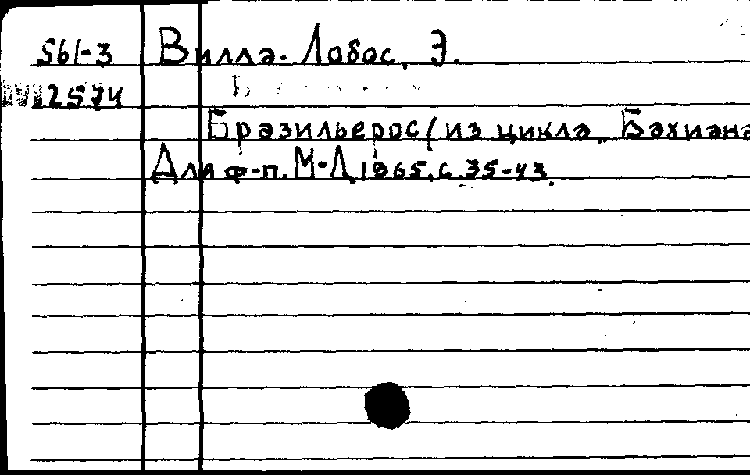 561-3 Вилла-Лобос, Э.
12574
Бразильерос (из цикла „Бахиана
Для ф-п. М-Л, 1965, с. 35-43.